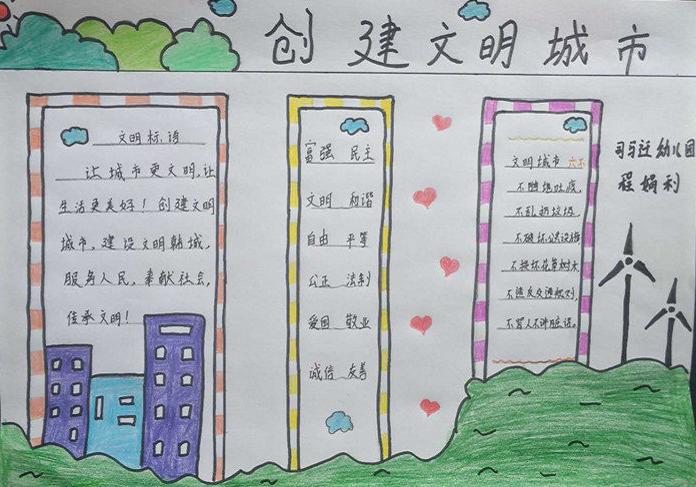 创建文明城市
文明标语
让城市更文明,让
生活更美好!创建文明
城市,建设文明韩城,
服务人民,奉献社会,
传承文明!
富强 民主
文明 和谐
自由 平等
公正 法制
爱国 敬业
诚信 友善
文明城市 六不
不随地吐痰,
不乱扔垃圾,
不破坏公共设施
不损坏花草树木
不违反交通规则,
不骂人不讲脏话。
幼儿园
程娟利